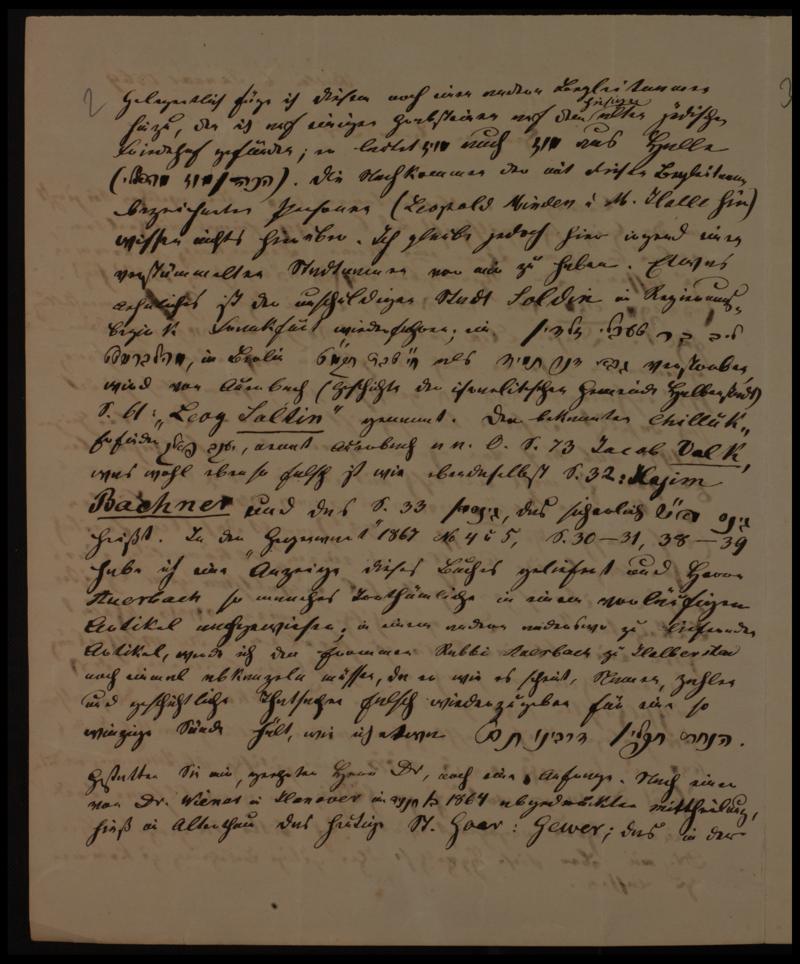 2
Gelegentlich füge ich diesem noch einen andern Begleitnamen
hinzu, den ich auf einigen Grabsteinen auf dem hiesigen alten jüdischen
Friedhof gefunden; er lautet מוץ auch מוץ aus Halle
Die Nachkommen der mit diesem Begleitnamen
bezeichneten Personen (Leopold Minden & M. Halle hier)
wissen nichts hierüber. Ich glaube jedoch hier irgend einen
verstümmelten Stadtnamen vor mir zu haben. Etwas
aehnliches ist der unschuldigen Stadt Soldin in Regierungs-
bezirk Frankfurt wiederfahren; ein
in Berlin als verstorben
wird von Auerbach (Geschichte der israelitischen Gemeinde Halberstadt)
S. 61: „Leog Saltin" genannt. Den bekannten Chilluk-
erfinder nennt Auerbach a. a. O. S. 73 Jacob Valk,
was wohl ebenso falsch ist wie ebendaselbst S. 32: Hajim
Bachner und das S. 33 das sicherlich
heißt. In der „Gegenwart" 1867 No 4 & 5, S. 30—31, 38—39
habe ich eine Anzeige dieses Buches geliefert und Herrn
Auerbach so manches Irrthümliche in einem vorläufigen
Artikel nachgewiesen; in einem andern anderswo zu liefernden
Artikel, werde ich den frommen Rabbi Auerbach zu Halberstadt
noch einmal abkanzeln müssen, da er wie es scheint, Namen, Zahlen
und geschichtliche Thatsachen falsch wiederzugeben für eine so
winzige Sünde hält, wie ich etwa
Gestatten Sie mir, geehrter Herr Dr, noch eine Anfrage. Nach einer
von Dr. Wiener in Hannover in 1864 abgedruckten Mittheilung,
hieß in Alterthum das heutige St. Goar: Gewer; das in der